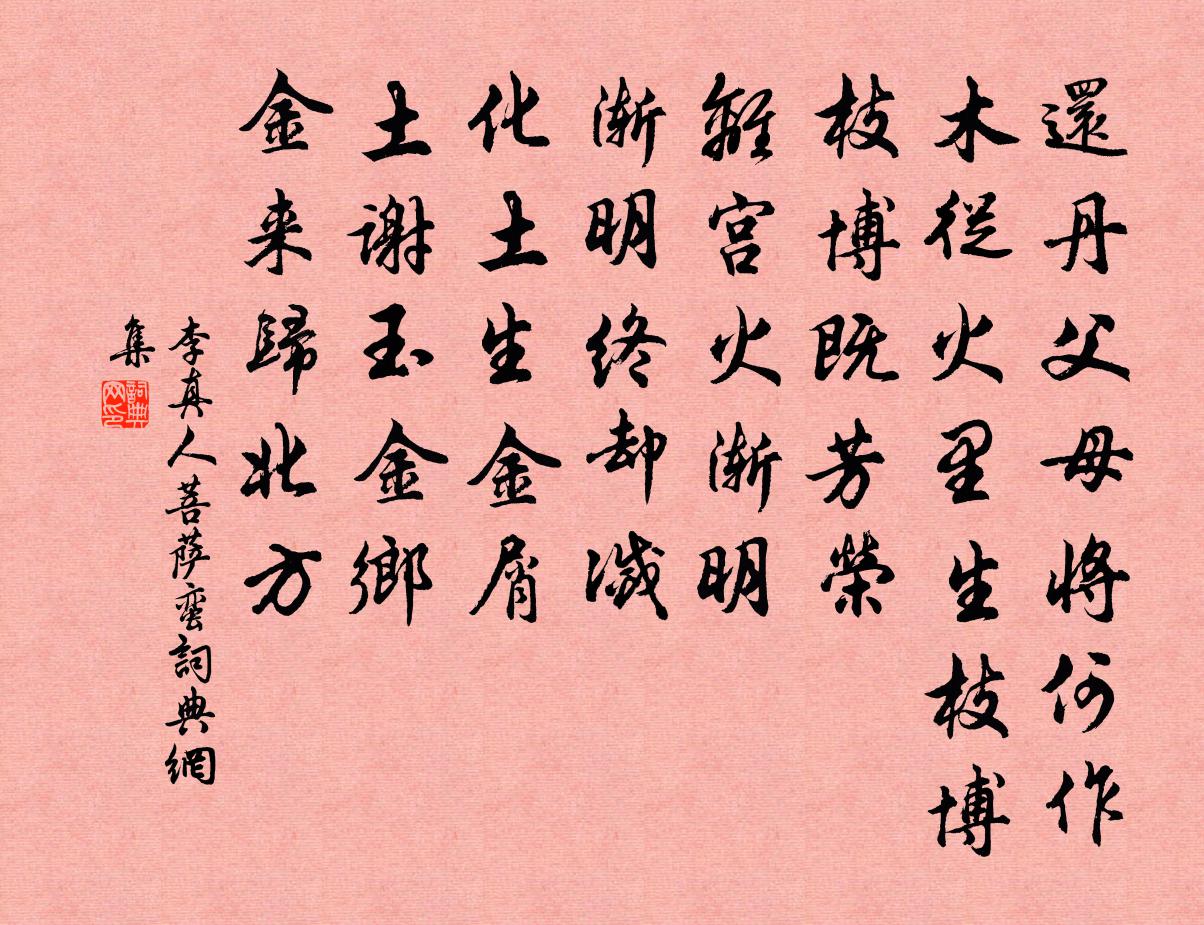 還丹父母將何作
木從火里生枝博
枝博既芳榮
離宮火漸明
漸明終却滅
化土生金屑
土謝玉金鄉
金来歸北方
李真人菩萨蛮詞典網
集
詞典網印